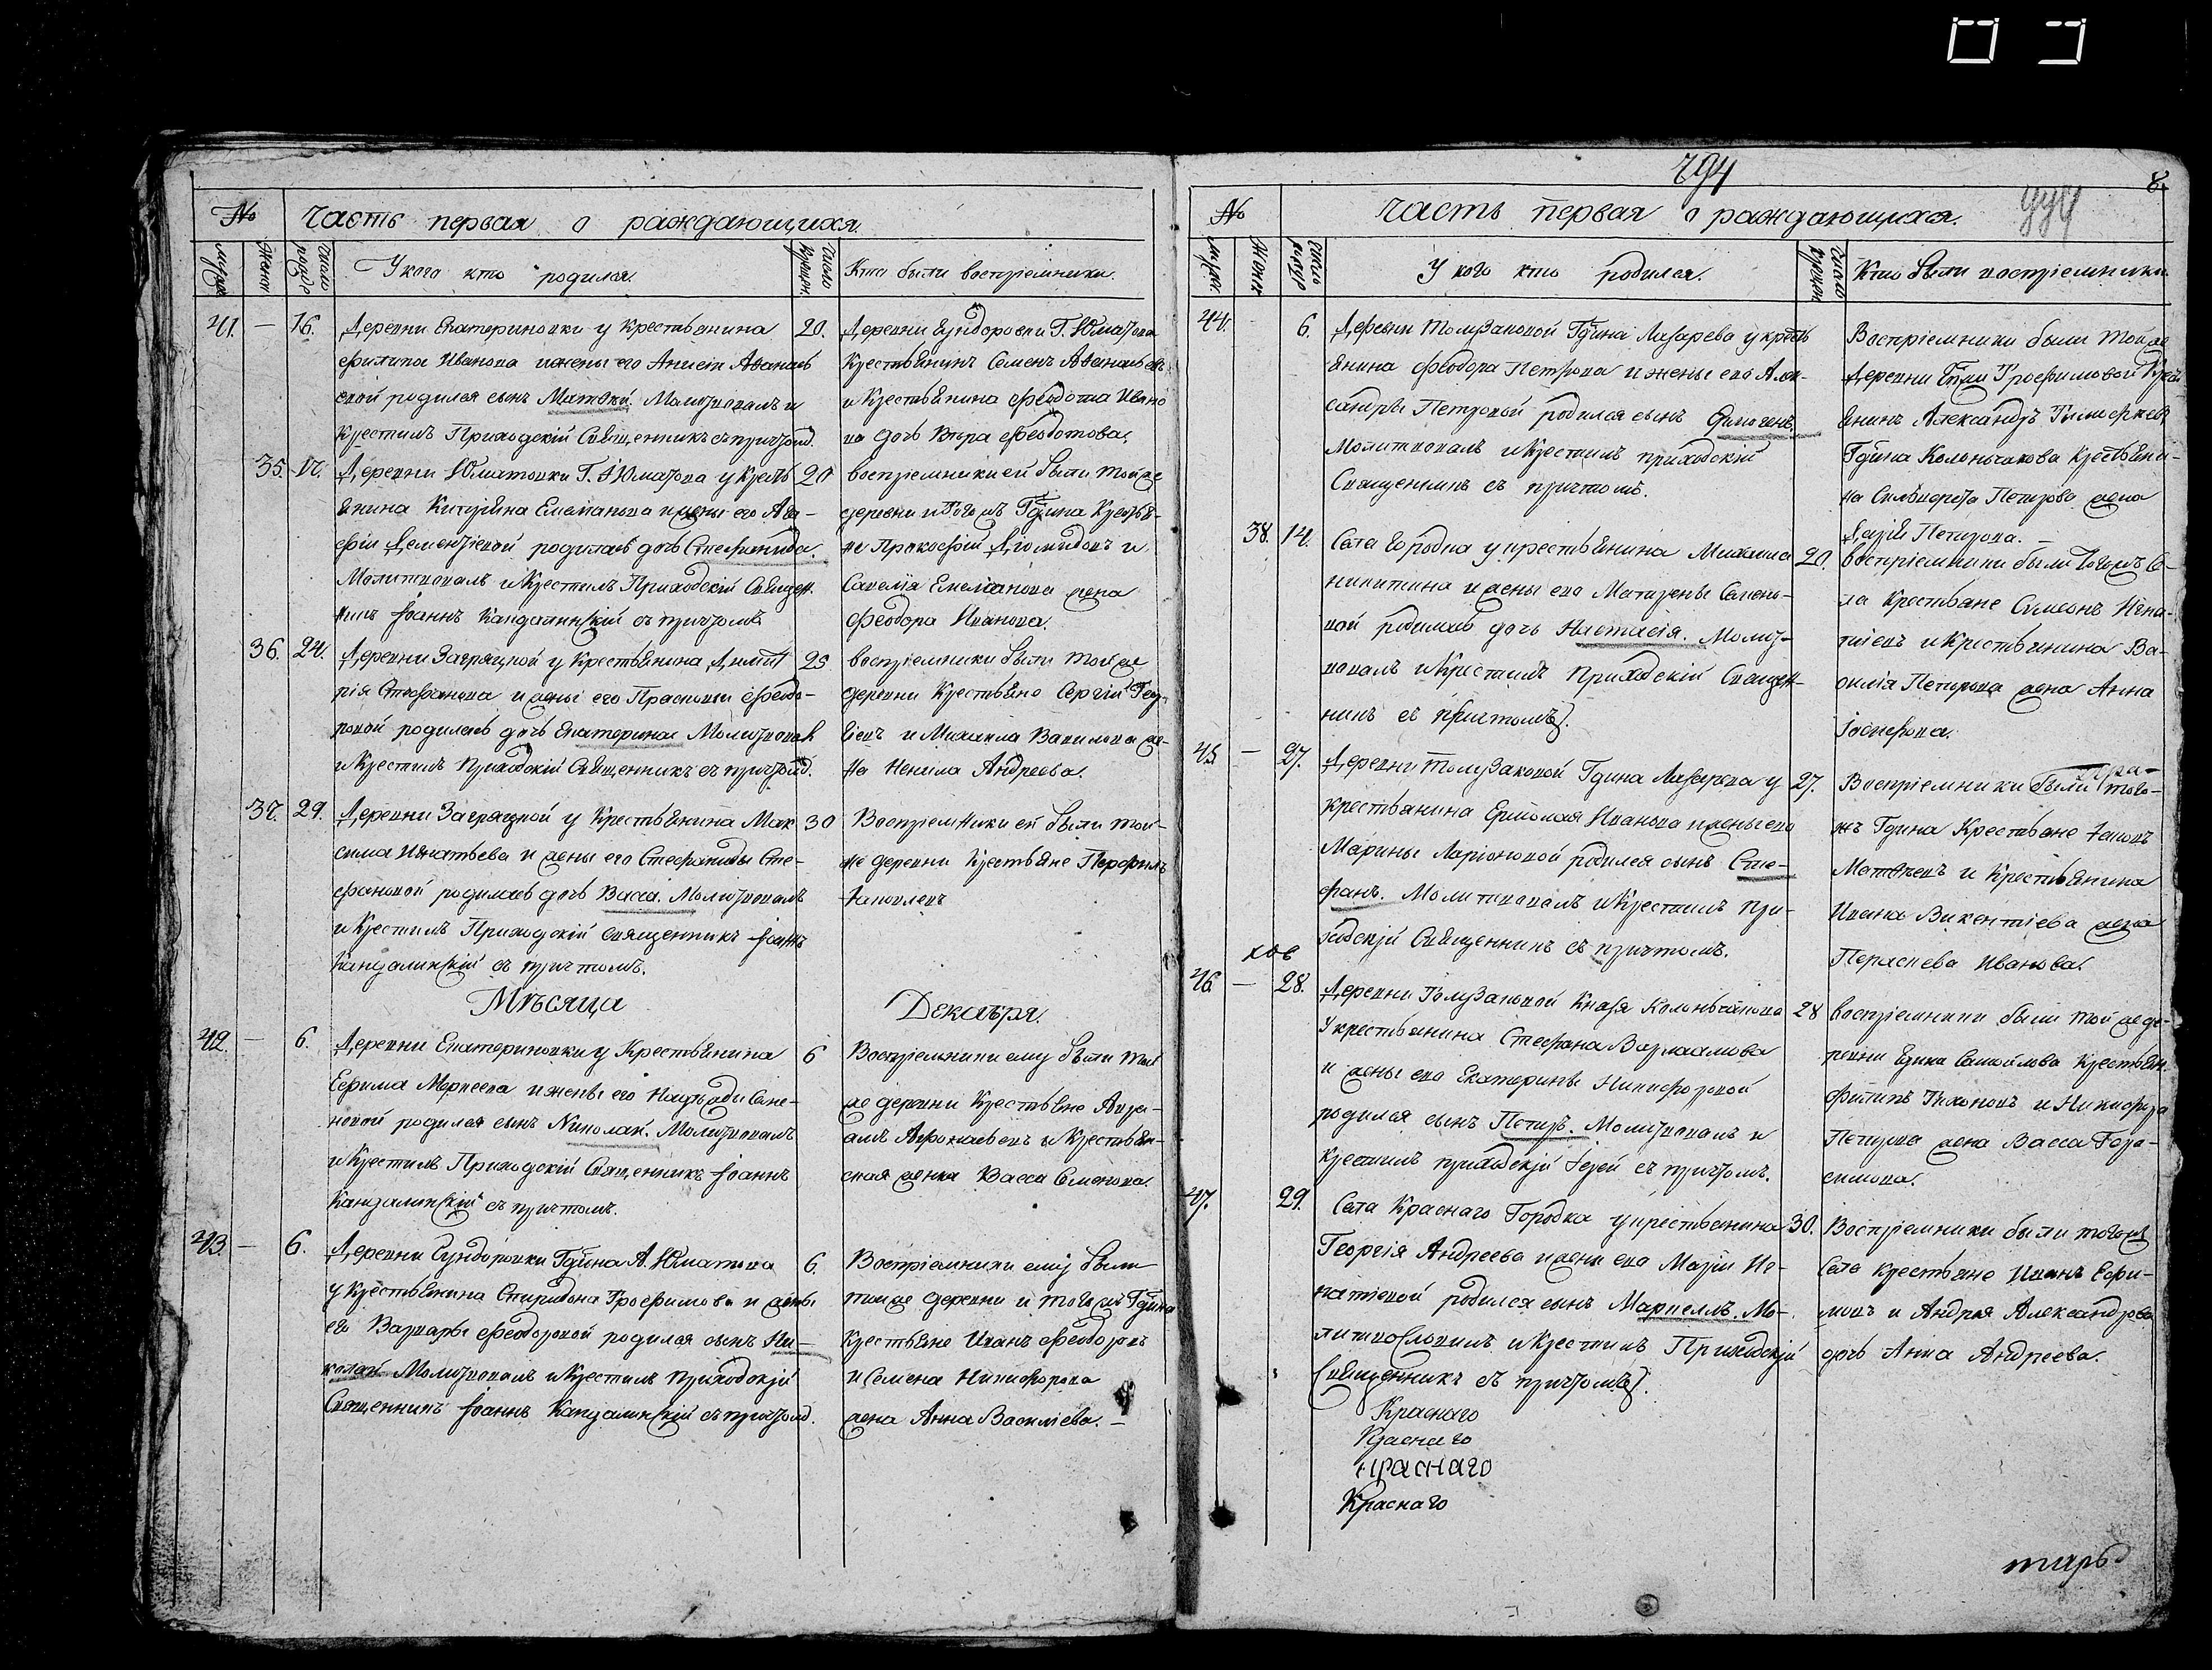 № Часть первая о раждающихся.
Мужеск Женск Число родив У кого кто родился. Число крещен. Кто были воспріемники.
41. — 16. Деревни Екатериновки у Крестьянина 20.
Филипа Иванова и жены его Анисіи Аѳанась
евой родился сынъ Матвей. Молитвовалъ и
Крестилъ Приходскій Священникъ съ причтом.
Деревни Сундоровки Г. Юматова
Крестьянинъ Семенъ Аѳанасьевъ
и Крестьянина Феодота Ивано
ва дочь Вѣра Феодотова.
35. 17. Деревни Юматовки Г. Юматова у Кресть 20
янина Емельянова и жены его Ага-
фіи Дементіевой родилась дочь Стефанида.
Молитвовалъ и Крестилъ Приходскій Священ.
никъ Іоаннъ Кандалинскій съ причтомъ
воспріемники ей были той же
деревни и того жъ Гдина Крестья-
не Прокофій Діомидовъ и
Савелія Емеліанова жена
Феодора Иванова.
36. 24. Деревни Загряцкой у Крестьянина Дмит 25
рія Стефанова и жены его Прасковьи Феодо-
ровой родилась дочь Екатерина Молитвовал
и Крестилъ Приходскій Священникъ съ причтом.
воспріемники были той же
деревни Крестьяне Сергій
и Михаила Вавилова же-
на Ненила Андреева.
37. 29. Деревни Загряцкой у Крестьянина Мак 30
сима Игнатьева и жены его Стефаниды Сте-
фановой родилась дочь Васса. Молитвовалъ
и Крестилъ Приходскій священникъ Іоаннъ
Кандалинскій съ причтомъ.
Воспріемники ей были той-
же деревни Крестьяне Перфилъ
Яковлевъ
Мѣсяца Декабря.
42. — 6. Деревни Екатериновки у Крестьянина 6
Ефима Моркеева и жены его Надежды Семе-
новой родился сынъ Николай. Молитвовалъ
и Крестилъ Приходскій Священникъ Іоаннъ
Кандалинскій съ причтомъ.
Воспріемники ему были той
же деревни Крестьяне Авра-
амъ Афонасьевъ и Крестьян-
ская женка Васса Семенова.
43. — 6. Деревни Сундоровки Гдина А. Юматова 6.
у Крестьянина Спиридона Трофимова и жены
его Варвары Феодоровой родился сынъ Ни-
колай Молитвовалъ и Крестилъ приходскій
Священникъ Іоаннъ Кандалинскій съ причтом.
Воспріемники ему были
тойже деревни и того жъ Гдина
Крестьяне Иванъ Феодоровъ
и Семена Никифорова
жена Анна Василіева. —
794
8.
№ Часть первая о раждающихся.
Мужес. Женск Число рожд У кого кто родился. Число крещен Кто были воспріемники
44. 6. Деревни Толузаковой Гдина Лазарева у кресть
янина Феодора Петрова и жены его Алек-
сандры Петровой родился сынъ
Молитвовалъ и Крестилъ приходскій
Священникъ съ причтомъ.
Воспріемники были той же
Деревни Гпжи Трофимовой Крест
янинъ Александръ Тимофеевъ
Гдина Колончакова Крестьяни-
на Сильвестра Петрова жена
Дарія Петрова. —
38. 14. Села Городка у крестьянина Михаила 20.
никитина и жены его Матрены Семено-
вой родилась дочь Настасія. Молит-
вовалъ и Крестилъ Приходскій Священ-
никъ съ причтомъ.
воспріемники были того жъ Се-
ла Крестьяне Симеонъ Игна-
тіевъ и Крестьянина Ва-
силія Петрова жена Анна
Іосифова.
45. — 27. Деревни Толузаковой Гдина Лазарева у 27.
крестьянина Ермолая Иванова и жены его
Марины Ларіоновой родился сынъ Сте-
фанъ. Молитвовалъ и Крестилъ При-
ходскій Священникъ съ причтомъ.
Воспріемники были того-
жъ Гдина Крестьяне Яковъ
Матвеевъ и Крестьянина
Ивана Викентіева жена
Иванова.
хов
46. — 28. Деревни Толузаковой Князя Колончакова 28
У крестьянина Стефана Варлаамова
и жены его Екатерины Никифоровой
родился сынъ Петръ. Молитвовалъ и
крестилъ приходскій Іерей съ причтомъ.
воспріемники были той же де-
ревни Гдина Самойлова Крестьян.
Филипъ Тихоновъ и Никифора
Петрова жена Васса Гера-
симова.
47. 29. Села Краснаго Городка у крестьянина 30.
Георгія Андреева и жены его Маріи Иг-
натіевой родился сынъ Маркеллъ. Мо-
литвословилъ и Крестилъ Приходскій
Священникъ съ причтомъ.
Воспріемники были тогожъ
Села Крестьяне Иванъ Ефи-
мовъ и Андрея Александрова
дочь Анна Андреева.
Краснаго
Краснаго
Краснаго
Краснаго